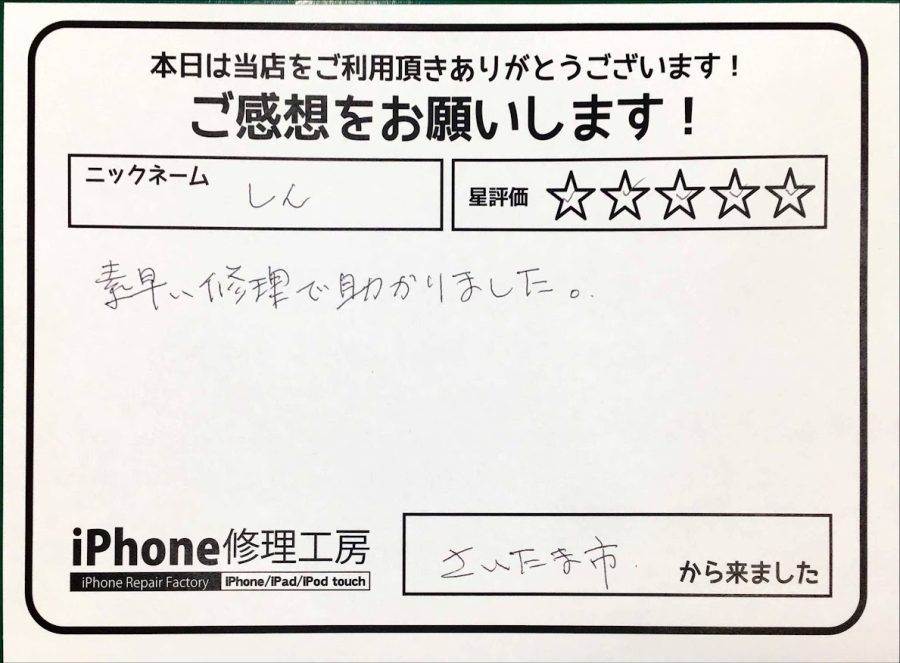 本日は当店をご利用頂きありがとうございます！
ご感想をお願いします！
ニックネーム しん
星評価 ☆☆☆☆☆
素早い修理で助かりました。
iPhone修理工房
iPhone Repair Factory iPhone/iPad/iPod touch
さいたま市 から来ました